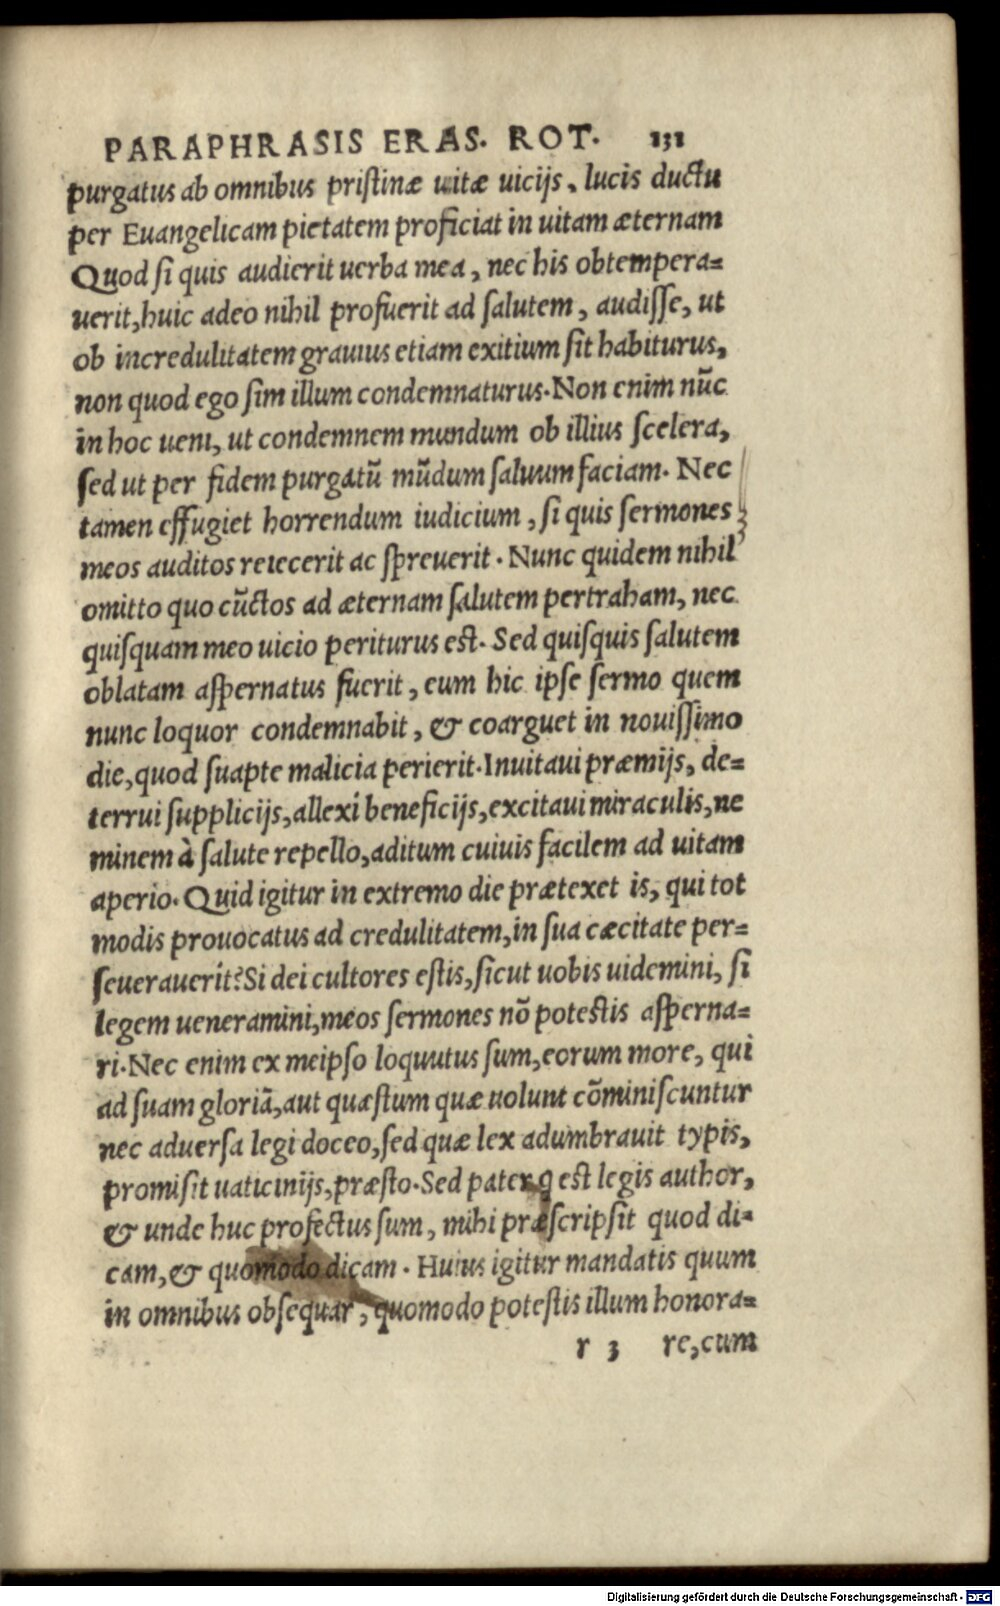 PARAPHRASIS ERAS. ROT. 131
purgatus ab omnibus pristinæ uitæ uicijs, lucis ductu
per Euangelicam pietatem proficiat in uitam æternam
Quod si quis audierit uerba mea, nec his obtempera=
uerit, huic adeo nihil profuerit ad salutem, audisse, ut
ob incredulitatem grauius etiam exitium sit habiturus,
non quod ego sim illum condemnaturus. Non enim nūc
in hoc ueni, ut condemnem mundum ob illius scelera,
sed ut per fidem purgatū mūdum saluum faciam. Nec
tamen effugiet horrendum iudicium, si quis sermones
meos auditos reiecerit ac spreuerit. Nunc quidem nihil
omitto quo cūctos ad æternam salutem pertraham, nec
quisquam meo uicio periturus est. Sed quisquis salutem
oblatam aspernatus fuerit, eum hic ipse sermo quem
nunc loquor condemnabit, & coarguet in nouissimo
die, quod suapte malicia perierit. Inuitaui præmijs, de=
terrui supplicijs, allexi beneficijs, excitaui miraculis, ne
minem à salute repello, aditum cuiuis facilem ad uitam
aperio. Quid igitur in extremo die prætexet is, qui tot
modis prouocatus ad credulitatem, in sua cæcitate per=
seuerauerit? Si dei cultores estis, sicut uobis uidemini, si
legem ueneramini, meos sermones nō potestis asperna=
ri. Nec enim ex meipso loquutus sum, eorum more, qui
ad suam gloriā, aut quæstum quæ uolunt cōminiscuntur
nec aduersa legi doceo, sed quæ lex adumbrauit typis,
promisit uaticinijs, præsto. Sed pater q est legis author,
& unde huc profectus sum, mihi præscripsit quod di=
cam, & quomodo dicam. Huius igitur mandatis quum
in omnibus obsequar, quomodo potestis illum honora=
r 3 re, cum
Digitalisierung gefördert durch die Deutsche Forschungsgemeinschaft - DFG